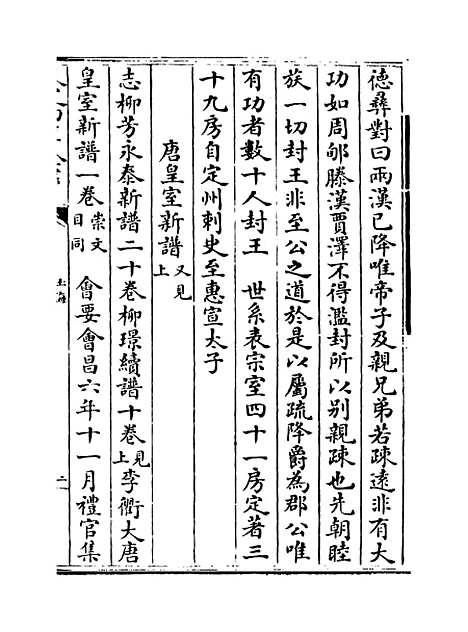 德彞對曰兩漢已降唯帝子及親兄弟若疎遠非有大
功如周郇滕漢賈澤不得濫封所以别親疎也先朝睦
族一切封王非至公之道於是以屬疏降爵為郡公唯
有功者數十人封王　世系表宗室四十一房定著三
十九房自定州刺史至惠宣太子
唐皇室新譜又見上
志柳芳永泰新譜二十卷柳璟續譜十卷見上李衢大唐
皇室新譜一卷崇文目同　會要會昌六年十一月禮官集
玉海
二